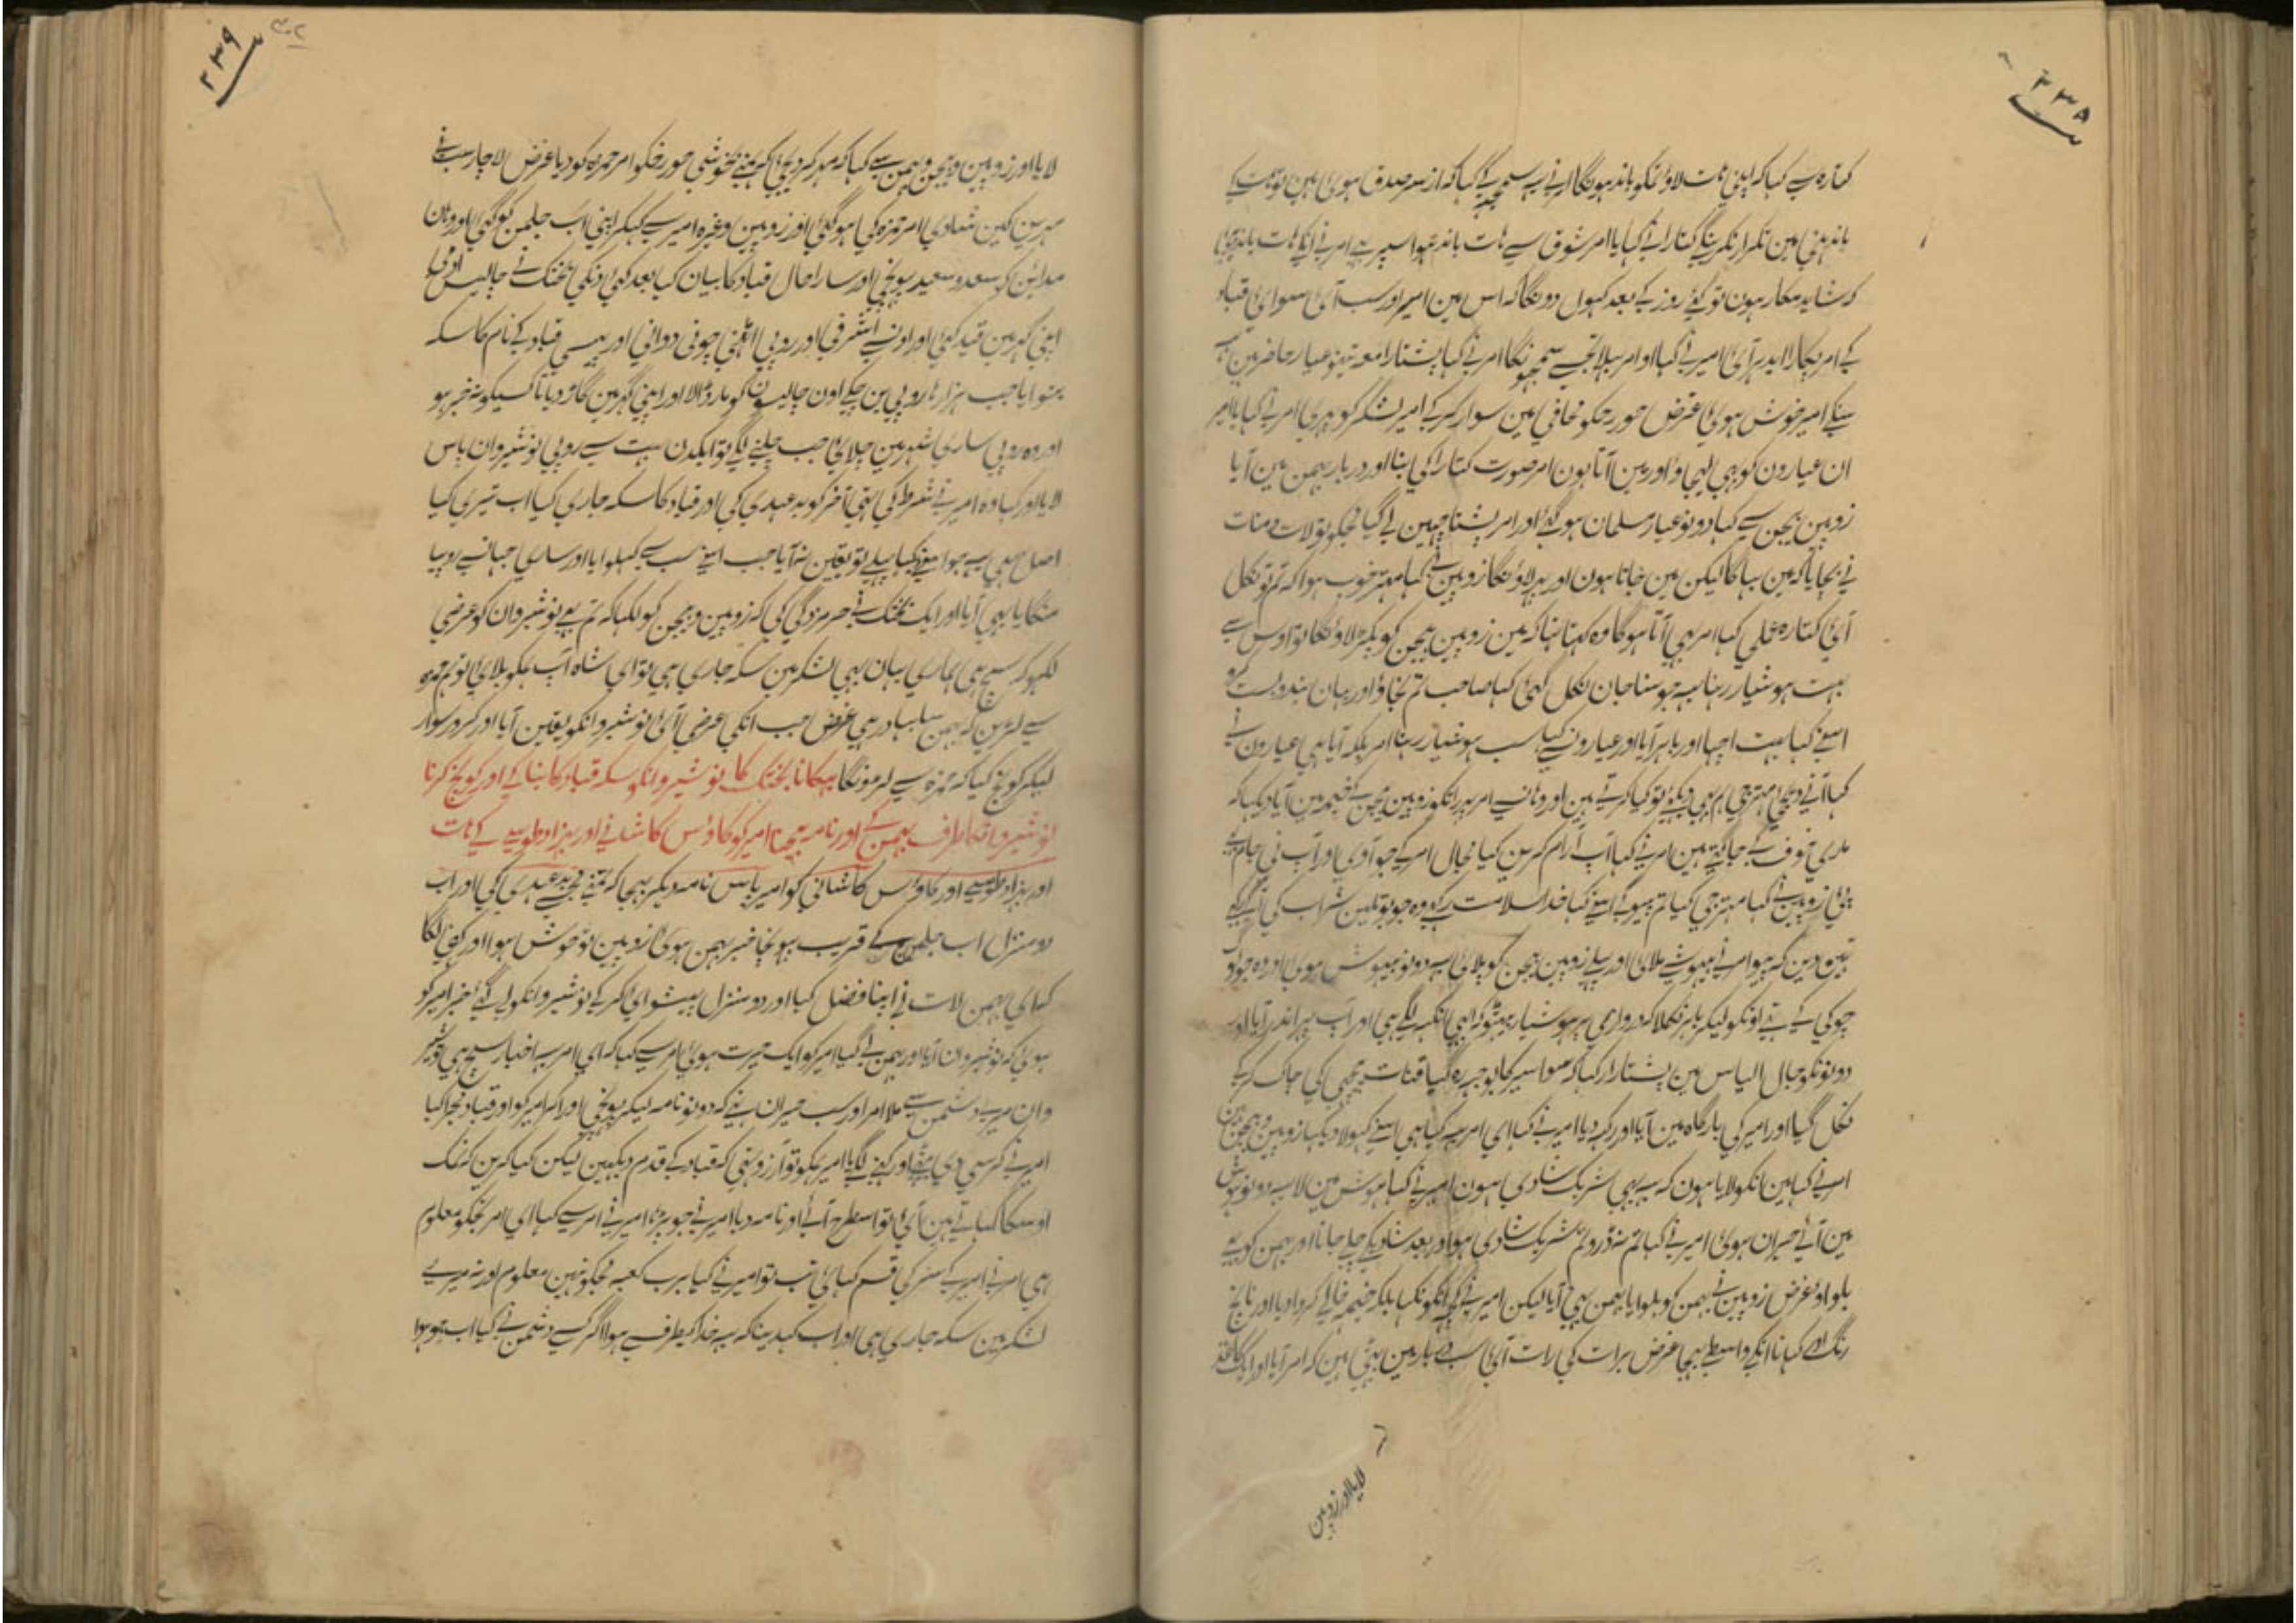 ۲۳۸
کتارہ سے کہا کہ اپنی ہات لاؤ تمکو باندہونگا امر نے یہ سمجہہ کے کہا کہ از سر صدق ہوئی ہین تو ہات کے
باندہنی مین تکرار نکرینگے کتارا نے کہا یا امر شوق سے ہات باندہو امر نے انکے ہات باندہی
کہ شاید مکار ہون تو کئی روز کے بعد کہول دونگا کہ اس مین امیر اور سب آئی سوای قباد
کے امر پکارا ایدہر آئی امیر نے کہا او امر بہلا تجہے سمجہونگا امر نے کہا پشتارا معہ عیار حاضر ہین
سنکے امیر خوش ہوئی غرض حور رخکو محافی مین سوار کر کے امیر لشکر کو پہری امر نے کہا یا امیر
ان عیارون کو بہی لیجاؤ اور مین آتا ہون امر صورت کتارا کی بنا اور دربار بہمن مین آیا
زوپین بیجن سے کہا دونو عیار مسلمان ہو گئے اور امر پشتارا چہین لے گیا مجکو تو لات منات
نے بچایا کہ مین بہاگا لیکن مین جاتا ہون اور پہر لاؤنگا زوپین نے کہا مہتر خوب ہوا کہ تم تو نکل
آئی کتارہ عملی کہا امر بہی آتا ہوگا وہ کہتا تہا کہ مین زوپین بیجن کو پکڑ لاؤنگا تو اوس سے
بہت ہوشیار رہنا یہہ جو سنا جان نکل گئی کہا صاحب تم نجاؤ اور یہان بندوبست کرو
اسنے کہا بہت اچہا اور باہر آیا اور عیارونسے کہا سب ہوشیار رہنا امر بلکہ آیا ہی عیارون نے
کہا آنے دیجئی مہتر جی ہم بہی دیکہو تو کیا کرتے ہین اور وہانسے امر پہر انکو زوپین بیجن کے خیمہ مین آیا دیکہا کہ
ماری خوف کے جاگتے ہین امر نے کہا آپ آرام کرین کیا مجال امر کے جو آوی اور آپ نی جام مے
پئی زوپین نے کہا مہتر جی کیا تم پیو گے اسنے کہا خدا سلامت رکہے وہ جو بوتلین شراب کی آگے
تہین دین کہ پیو امر نے بیہوشے ملائی اور پہلے زوپین بیجن کو پلائی یہ دونو بیہوش ہوئی اور وہ جو لوگ
چوکی کے تہے اونکو لیکر باہر نکلا کہ دروازی پر ہوشیار بیٹہو کہ ابہی انکہہ لگے ہی اور آپ پہر اندر آیا اور
دونونکو جال الیاس مین پشتارا کہا کہ سوا سیر کا بوجہ رہ گیا قنات پچہی کی چاک کر کے
نکل گیا اور امیر کی بارگاہ مین آیا اور رکہہ دیا امیر نے کہا ای امر یہہ کیا ہی اسنے کہولا دیکہا زوپین و بیجن ہین
امر نے کہا مین انکو لایا ہون کہ یہہ بہی شریک شادی ہون امیر نے کہا ہوش مین لا یہہ دونو ہوش
مین آئے حیران ہوئی امیر نے کہا تم نہ ڈرو تم شریک شادی ہو اور بعد شادیکے چلے جانا اور بہمن کو بہے
بلواؤ غرض زوپین نے بہمن کو بلوایا بہمن بہی آیا لیکن امیر نے کچہہ انکو نکہا بلکہ خیمہ خالی کروا دیا اور ناچ
رنگ اور کہانا انکے واسطے بہیجا غرض برات کی رات آئی سب دربار مین بیٹہی ہین کہ امر آیا اور ایک کاغذ
لایا اور زوپین
۲۳۹
۳۰۲
لایا اور زوپین و بیجن و بہمن سے کہا کہ مہر کر دیجی کہ ہمنے بخوشی حور رخکو امر حمزہ کو دیا غرض لاچار سب نے
مہرین کین شادی امر حمزہ کی ہو گئی اور زوپین وغیرہ امیر سے کہکر اپنی آب جلمن کو گئی اور وہان
مداین کو سعد و سعید پہونچی اور سارا حال قباد کا بیان کیا بعد کئی دنکی بختک نے چالیس آدمی
اپنی گہر مین قید کئی اور اونسے اشرفی اور روپی اٹہنی چونی دوانی اور پیسی قباد کے نام کا سکہ
بنوایا جب ہزارہا روپی بن چکے اون چالیسونکو مار ڈالا اور اپنی گہر مین گاڑ دیا تا کسیکو نہ خبر ہو
اور وہ روپی ساری شہر مین چلائی جب چلنے لگے تو ایکدن بہت سے روپی نوشیروان پاس
لایا اور کہا وہ امیر نے شرط کی تہی آخر کو بدعہدی کی اور قباد کا سکہ جاری کیا اب تیری کیا
اصل ہی یہہ جو اسنے کہا پہلے تو یقین نہ آیا جب اسنے سب سے کہلوایا اور ساری جہانسے روپیا
منگایا بہی آیا اور ایک بختک نے حرمزدگی کی کہ زوپین و بیجن کو لکہا کہ تم بہے نوشیروان کو عرضی
لکہو کہ سچ ہی ہماری یہان بہی لشکر مین سکہ جاری ہی تو ای شاہ آپ ہمکو بلائی تو ہم حمزہ
سے لڑین کہ بہمن سا بہادر ہی غرض جب انکی عرضی آئی نوشیروانکو یقین آیا اور کرور سوار
لیکر کوچ کیا کہ حمزہ سے لڑونگا بہکانا بختک کا نوشیروانکو سکہ قباد کا بنا کے اور کوچ کرنا
نوشیروانکا طرف بہمن کے اور نامہ بہیجنا امیر کو کاؤس کاشانے اور بہزاد طوسے کے ہات
اور بہزاد طوسے اور کاؤس کاشانی کو امیر پاس نامہ دیکر بہیجا کہ تمنے مجہے بدعہدی کی اور اب
دو منزل اب جلمن کے قریب پہونچا خبر بہمن ہوئی زوپین تو خوش ہوا اور کہنی لگا
کہ ای بہمن لات نے اپنا فضل کیا اور دو منزل پیشوائی کر کے نوشیروانکو لے گئے خبر امیر کو
ہوئی کہ نوشیروان آیا اور بہمن لے گیا امیر کو ایک حیرت ہوئی امر سے کہا کہ ای امر یہہ اخبار سچ ہی نوشیر
وان میرے دشمن سے ملا امر اور سب حیران تہے کہ دونو نامہ لیکر پہونچی اور آکر امیر کو اور قباد کو مجرا کیا
امیر نے کرسی دی بیٹہے اور کہنے لگے یا امیر ہمکو تو آرزو تہی کہ قباد کے قدم دیکہین لیکن کیا کرین کہ نمک
اوسکا کہاتے ہین آئی تو اسطرح آئے اور نامہ دیا امیر نے جو پڑہا امیر نے امر سے کہا ای امر تجکو معلوم
ہی امر نے امیر کے سر کی قسم کہائی تب تو امیر نے کہا برب کعبہ مجکو نہین معلوم اور نہ میرے
لشکر مین سکہ جاری ہی اور اب کہدینا کہ یہہ خدا کیطرف سے ہوا اگر کسے دشمن نے کیا اب جو ہوا